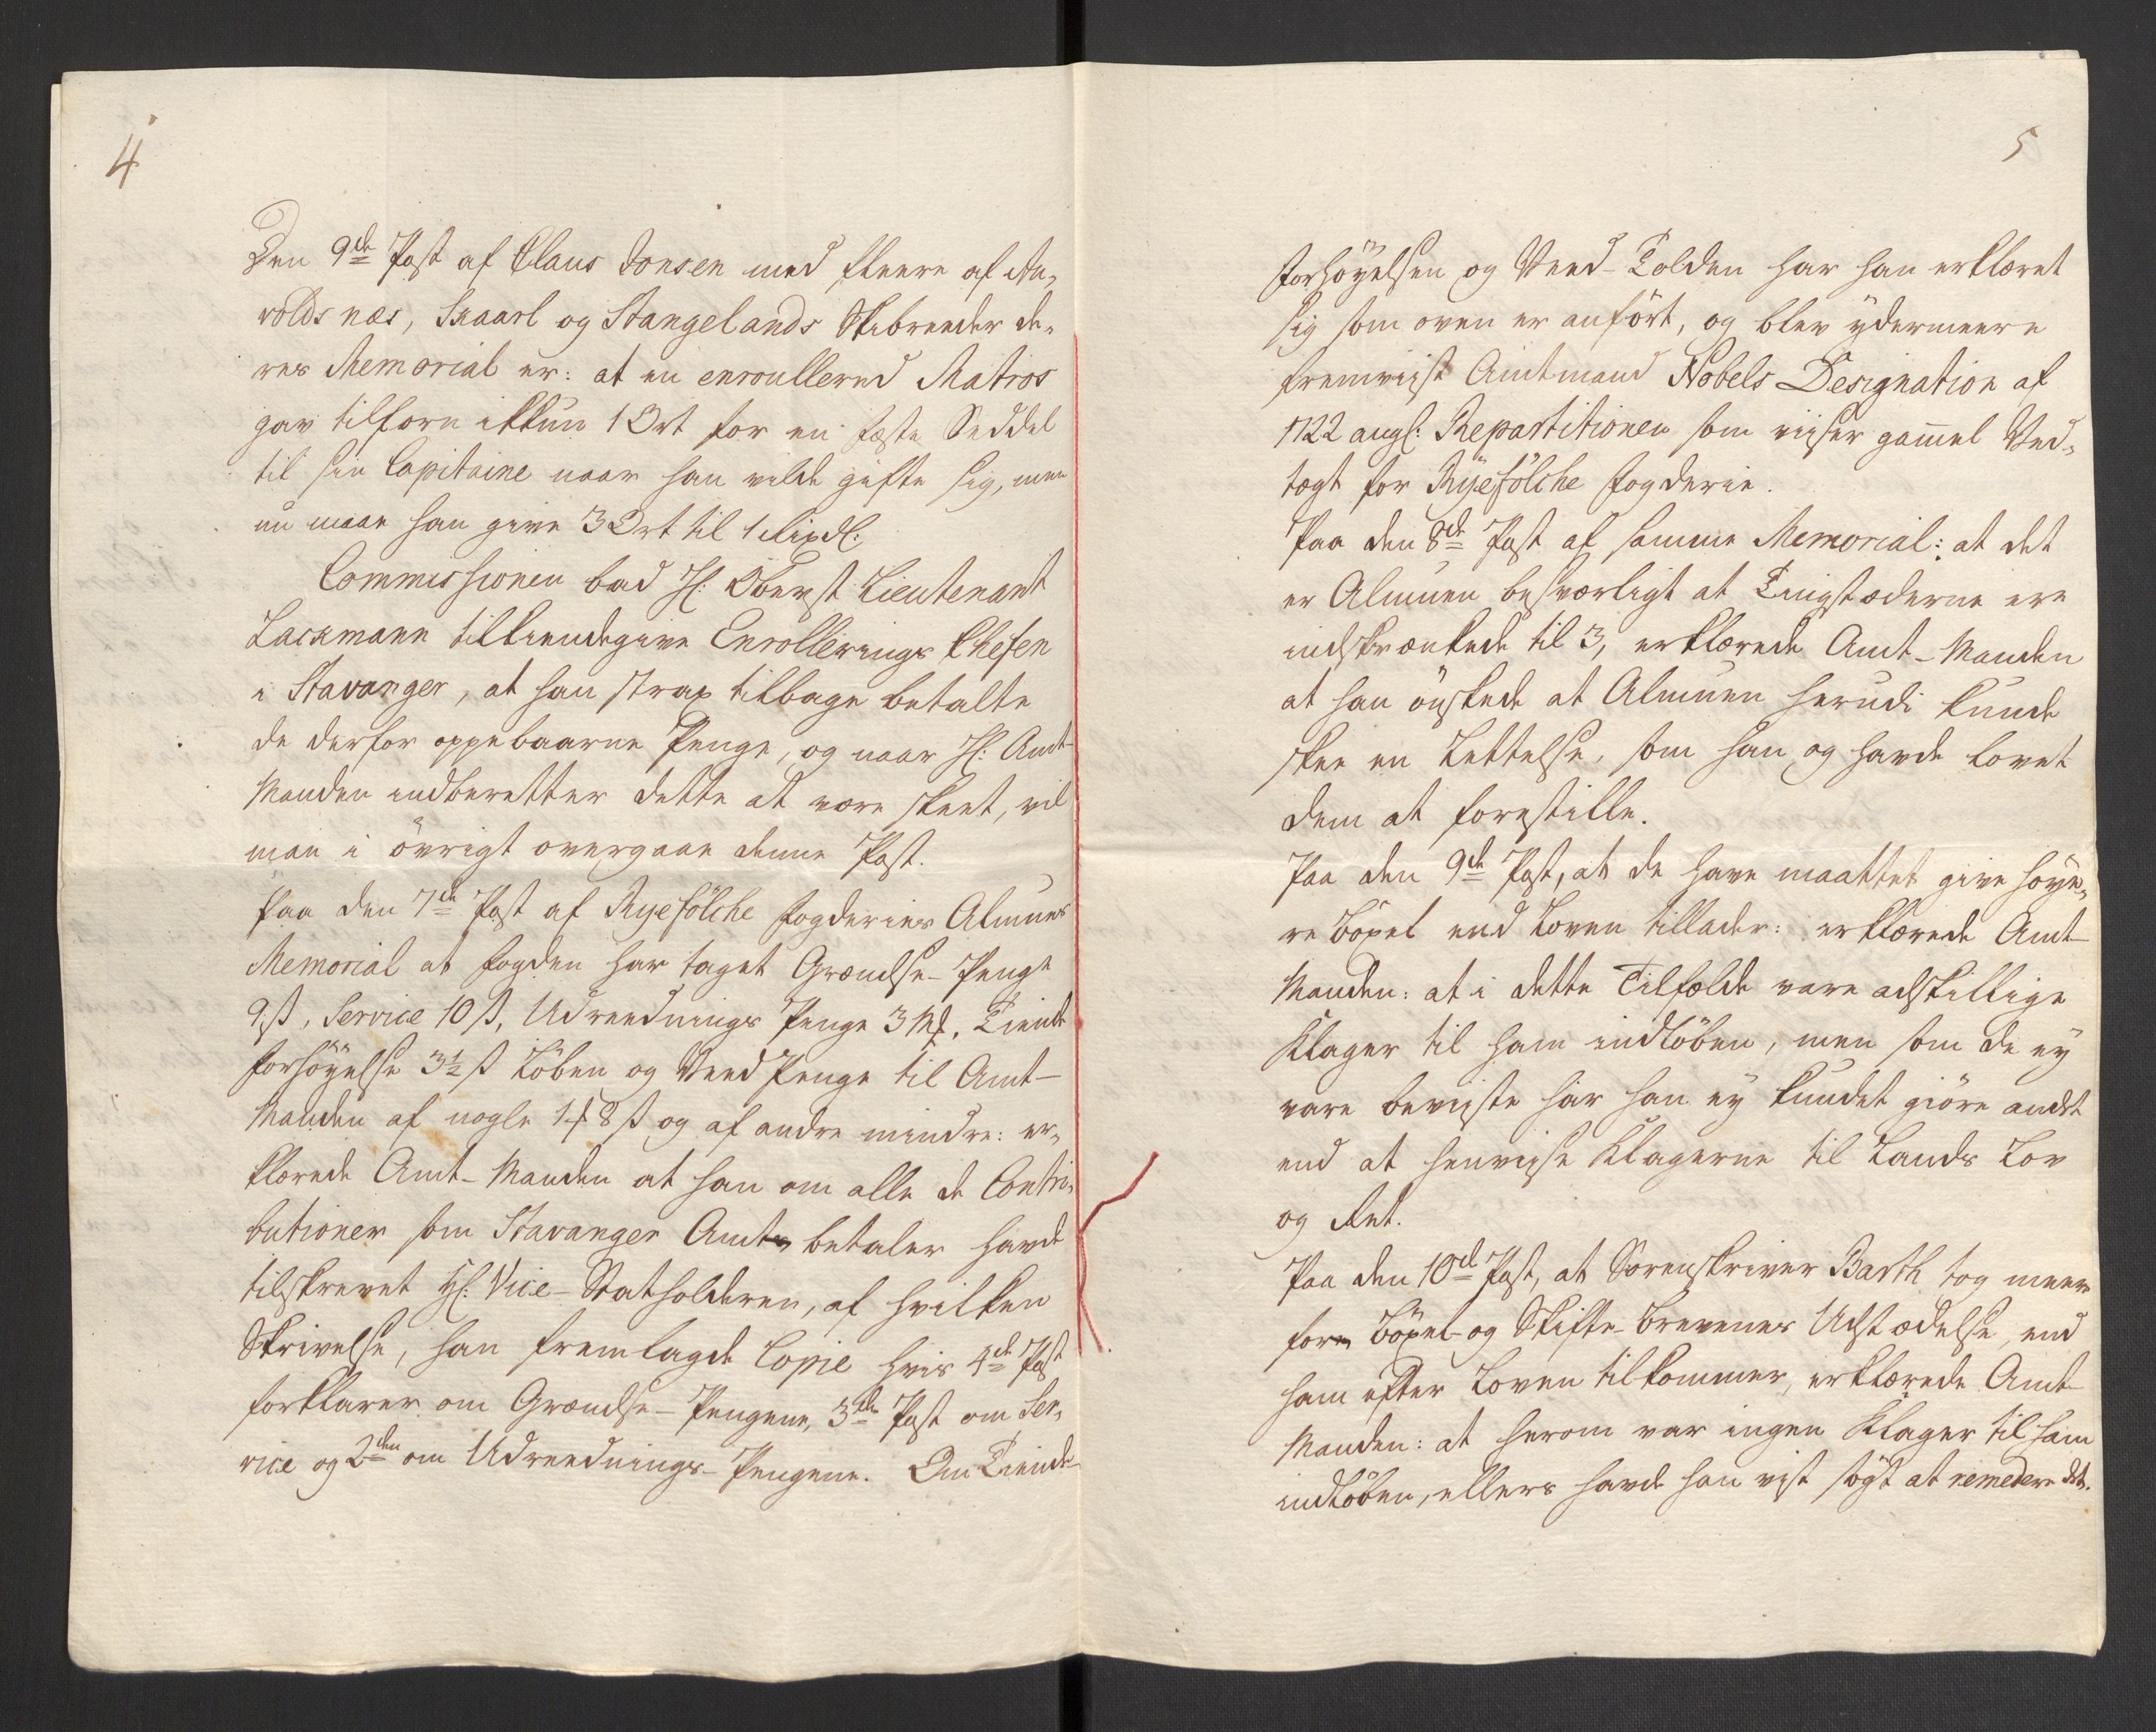 4
Den 9de Post af Claus Jonsen med fleere af Au-
volds næs, Skaarl og Stangelands Skibreeder de-
res Memorial er: at en enroullered Matros
gav tilforn ikkun 1 Ort for en Fæste Seddel
til sin Capitaine naar han vilde gifte sig, men
nu maae han give 3 Ort til 1 Rixdl:
Commissionen bad H: Oberst Lieutenant
Lackmann tilkiendegive Enrollerings Chefen
i Stavanger, at han strax tilbage betalte
de derfor oppebaarne Penge, og naar H: Amt-
Manden indberetter dette at være skeet, vil
man i övrigt overgaae denne Post.
Paa den 7de Post af Ryefölche Fogderies Almues
Memorial at Fogden har taget Grændse-Penge
9 ß, Service 10 ß, Udreednings Penge 3 Mk, Tiende
Forhöyelse 3½ ß Löben og Veed Penge til Amt-
Manden af nogle 1 Mk 8 ß og af andre mindre: er-
klærede Amt-Manden at han om alle de Contri-
butioner som Stavanger Amt betaler havde
tilskrevet H: Vice-Statholderen, af hvilken
Skrivelse, han fremlagde Copie hvis 4de Post
forklarer om Grændse-Pengene, 3die Post om Ser-
vice og 2den om Udreednings-Pengene. Om Tiende-
5
Forhöyelsen og Veed-Tolden har han erklæret
sig som oven er anfört, og blev ydermeere
fremviist Amtmand Nobels Designation af
1722 angl: Repartitionen som viiser gammel Ved-
tægt for Ryefölche Fogderie.
Paa den 8de Post af samme Memorial: at det
er Almuen besværligt at Tingstæderne ere
indskrænkede til 3, erklærede Amt-Manden
at han önskede at Almuen herudi kunde
skee en Lettelse, som han og havde lovet
dem at forestille.
Paa den 9de Post, at de have maattet give höye-
re Böxel end Loven tillader: erklærede Amt-
Manden: at i dette Tilfælde vare adskillige
Klager til ham indlöben, men som de ey
vare beviiste har han ey kundet giöre andet
end at henviise Klagerne til Lands Lov
og Ret.
Paa den 10de Post, at Sorenskriver Barth tog meere
for Böxel- og Skifte-Brevenes Udstædelse, end
ham efter Loven tilkommer, erklærede Amt-
Manden: at herom var ingen Klager til ham
indlöben, ellers havde han vist sögt at remedere det.